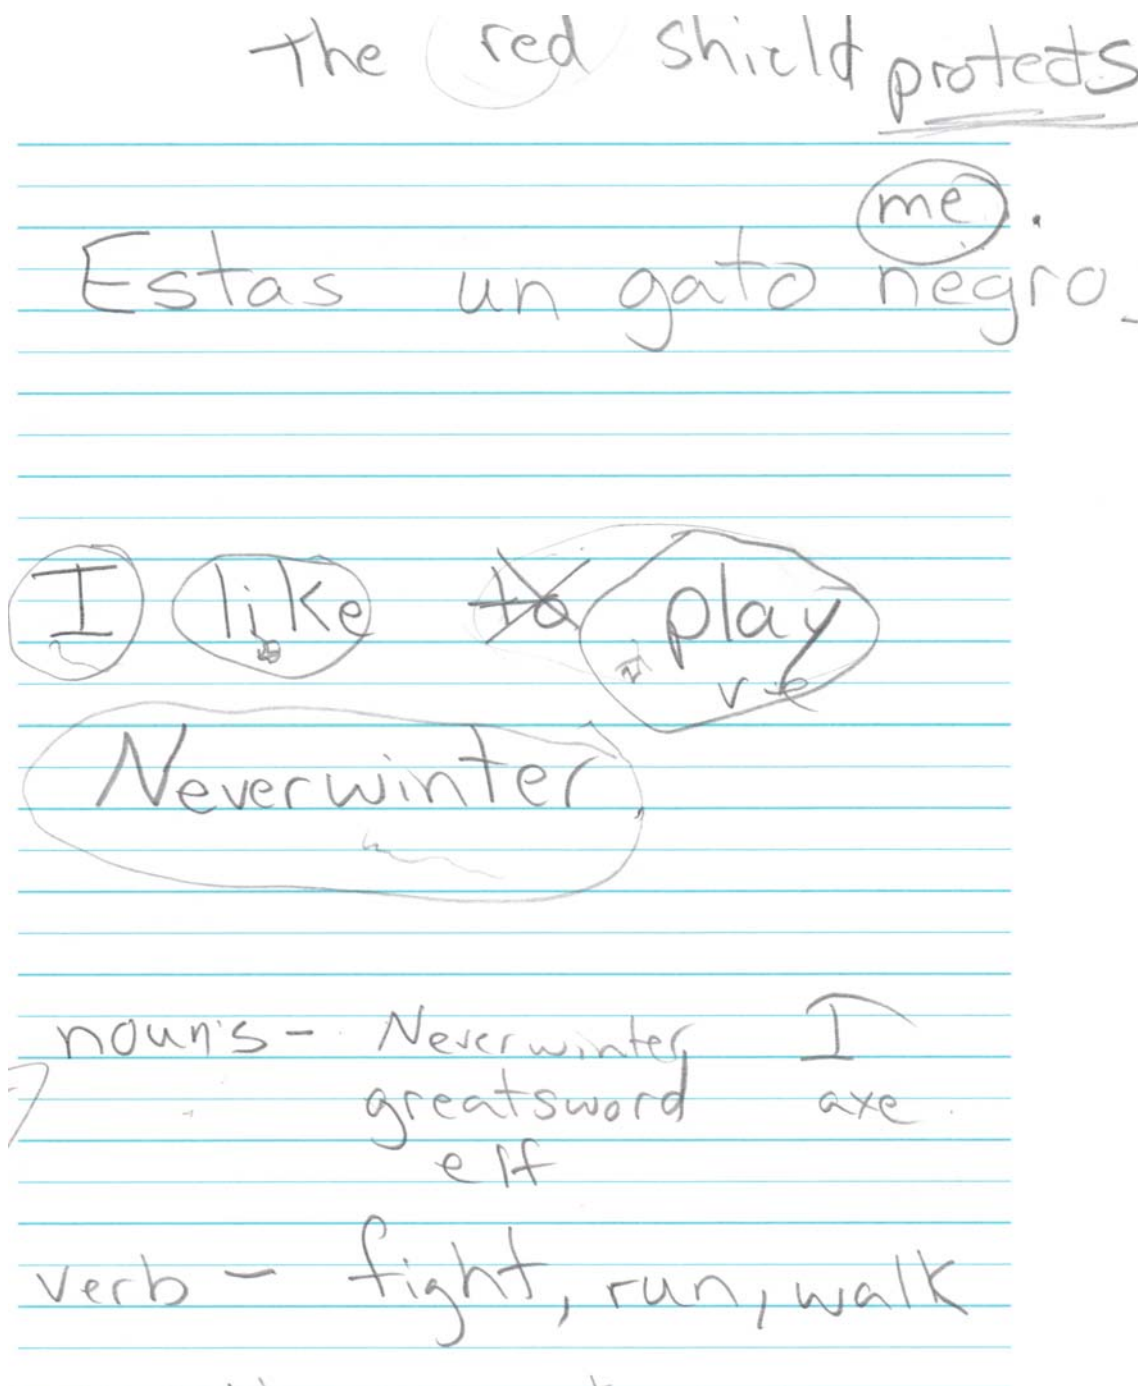 The red shield protects
me.
Estas un gato negro.
I like to play
Neverwinter
noun's - Neverwinter, I
greatsword axe
elf
verb - fight, run, walk